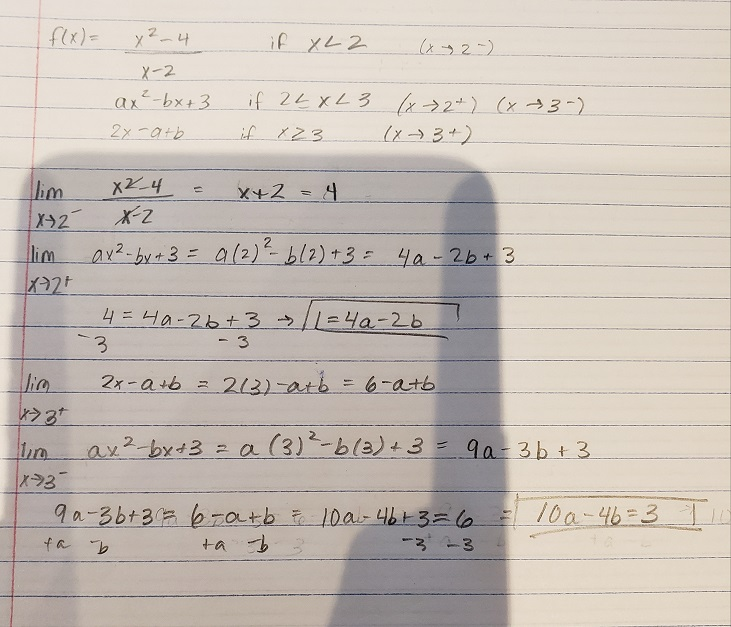 f(x) = x² - 4 if x < 2 (x → 2⁻)
x - 2
ax² - bx + 3 if 2 < x < 3 (x → 2⁺) (x → 3⁻)
2x - a + b if x ≥ 3 (x → 3⁺)
lim x² - 4 = x + 2 = 4
x → 2⁻ x - 2
lim ax² - bx + 3 = a(2)² - b(2) + 3 = 4a - 2b + 3
x → 2⁺
4 = 4a - 2b + 3 → 1 = 4a - 2b
- 3 - 3
lim 2x - a + b = 2(3) - a + b = 6 - a + b
x → 3⁺
lim ax² - bx + 3 = a(3)² - b(3) + 3 = 9a - 3b + 3
x → 3⁻
9a - 3b + 3 = 6 - a + b = 10a - 4b + 3 = 6 = 10a - 4b = 3
+a -b +a -b -3 -3